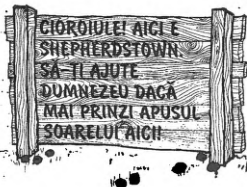 CIOROIULE! AICI E
SHEPHERDSTOWN.
SĂ-ȚI AJUTE
DUMNEZEU DACĂ
MAI PRINZI APUSUL
SOARELUI AICI!